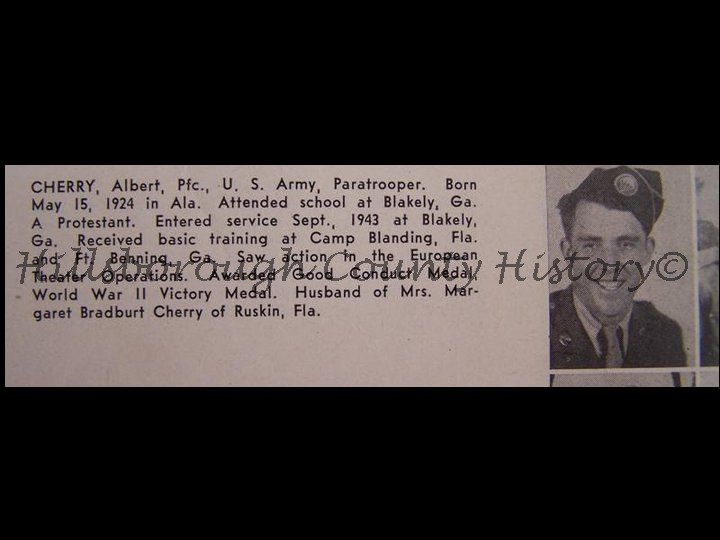 CHERRY, Albert, Pfc., U. S. Army, Paratrooper. Born
May 15, 1924 in Ala. Attended school at Blakely, Ga.
A Protestant. Entered service Sept., 1943 at Blakely,
Ga. Received basic training at Camp Blanding, Fla.
and Ft. Benning, Ga. Saw action in the European
Theater Operations. Awarded Good Conduct Medal,
World War II Victory Medal. Husband of Mrs. Mar-
garet Bradburt Cherry of Ruskin, Fla.
Hillsborough County History©